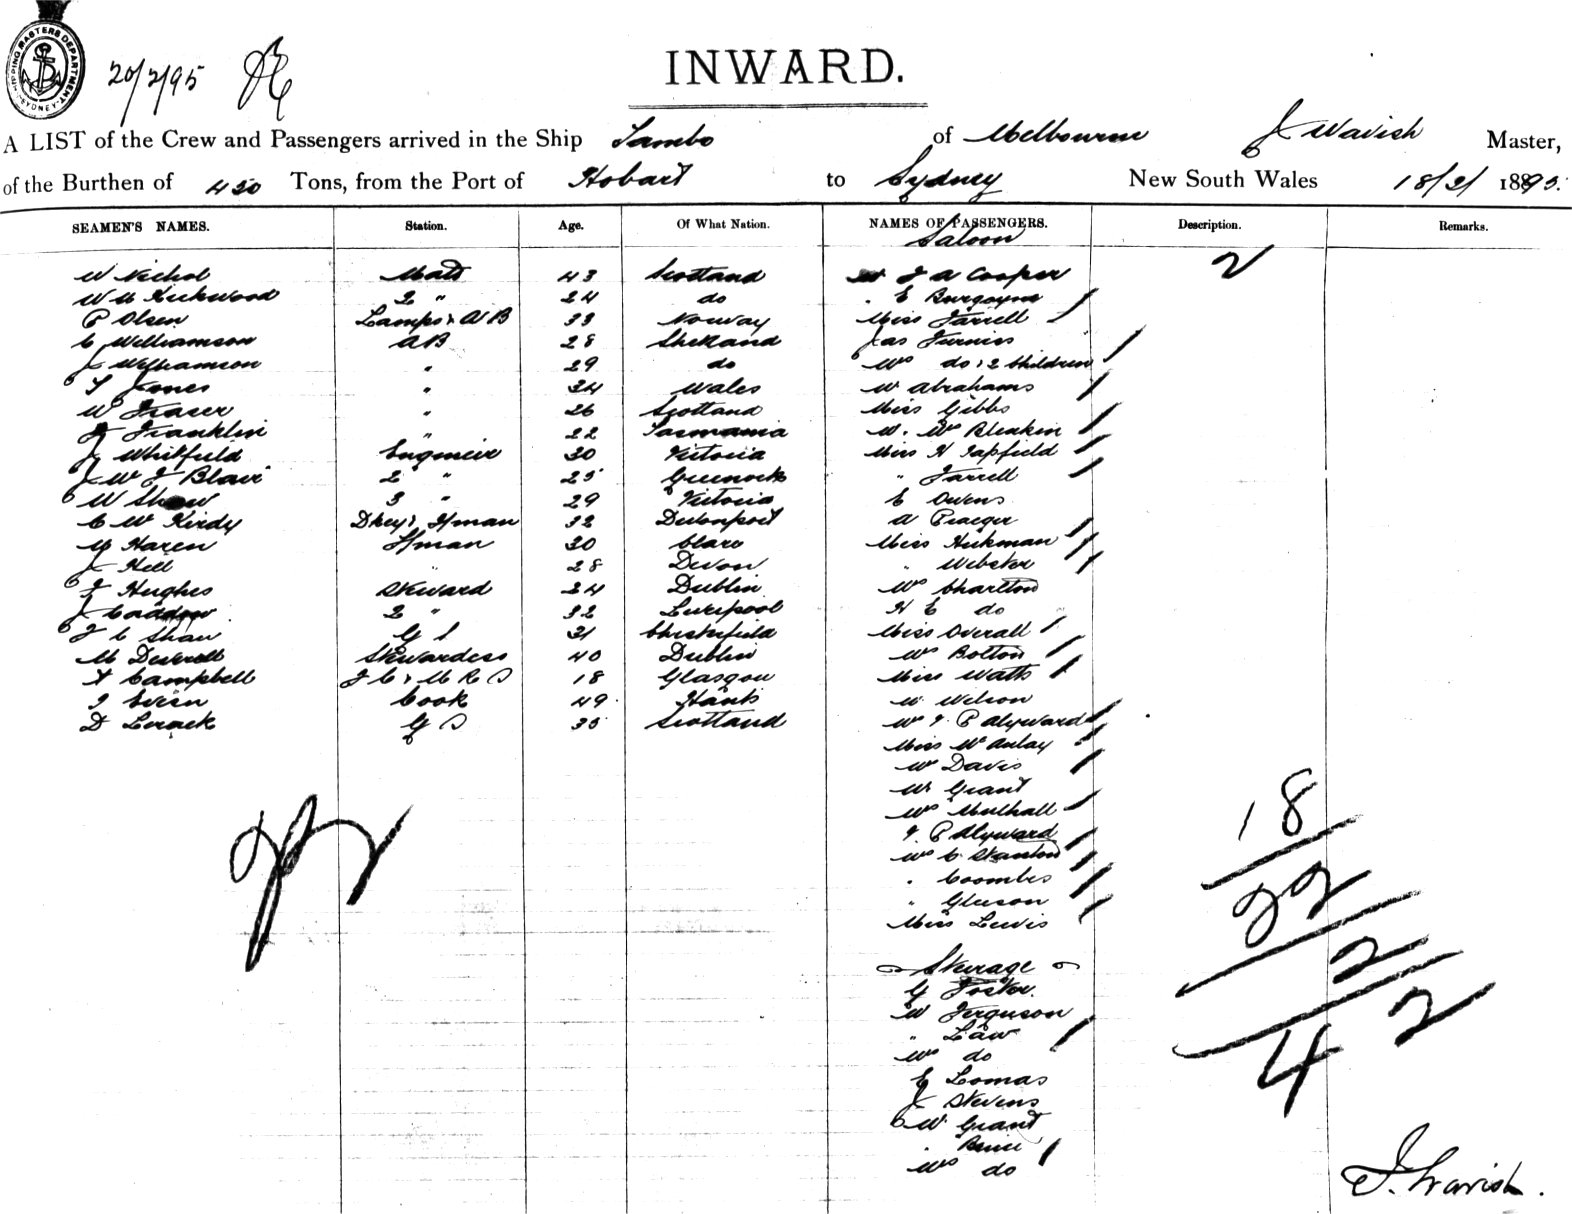 SHIPPING MASTERS DEPARTMENT. SYDNEY
20/2/95
INWARD.
A LIST of the Crew and Passengers arrived in the Ship Tambo of Melbourne J Wavish Master,
of the Burthen of 450 Tons, from the Port of Hobart to Sydney New South Wales 18/2/ 1895.
SEAMEN'S NAMES. Station. Age. Of What Nation. NAMES OF PASSENGERS. Description. Remarks.
Saloon
W Nichol Mate 43 Scotland J A Cooper 2
W Kirkwood 2 " 24 do " E Burgoyne
P Olsen Lamps & AB 33 Norway Miss Farrell
C Williamson AB 28 Shetland Jas Furniss
J Williamson " 29 do Mrs do & 2 Children
T Jones " 34 Wales W Abrahams
W Fraser " 26 Scotland Miss Gibbs
J Franklin " 22 Tasmania Bleakin
J Whitfield Engineer 30 Victoria Miss H Tapfield
J W J Blair 2 " 25 Greenock " Farrell
W Shaw 3 " 29 Victoria E Owens
C W Kirdy Dkey & Fman 32 Devonport A Praeger
M Haren Fman 30 Clare Miss Hickman
J Hell " 28 Devon " Webster
J Hughes Steward 34 Dublin Mrs Charlton
J 2 " 32 Liverpool H E do
J C Shaw G S 21 Chesterfield Miss Overall
M Deverell Stewardess 40 Dublin Mrs Bolton
A Campbell F C & M R S 18 Glasgow Miss Watts
Cook 49 Hants W Wilson
D G S 35 Scotland P Alyward
Miss McAulay
Mr Davis
Mr Grant
Mrs Mulhall
P Alyward
Mrs C Stanton
" Coombes
" Gleeson
Miss Lewis
Steerage
G Foster.
W Ferguson
" Law
Mrs do
E Lomas
J Stevens
W Grant
" Bruce
Mrs do
18
22
2
42
J. Wavish.